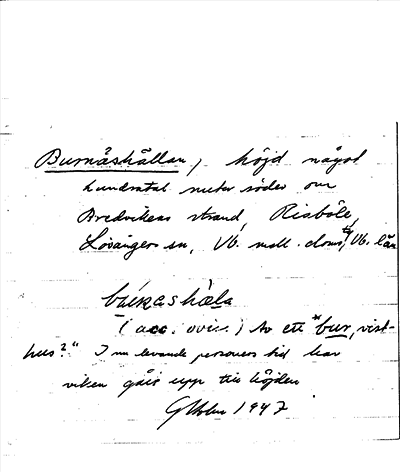 Burnåshällan, höjd något
hundratal meter söder om
Bredvikens strand, Risböle,
Lövångers sn, Vb. null. doms, Vb. län
búrnashæla
(acc. över.) Av ett "bur, vist-
hus?" I nu levande personers tid har
viken gått upp till höjden
1947